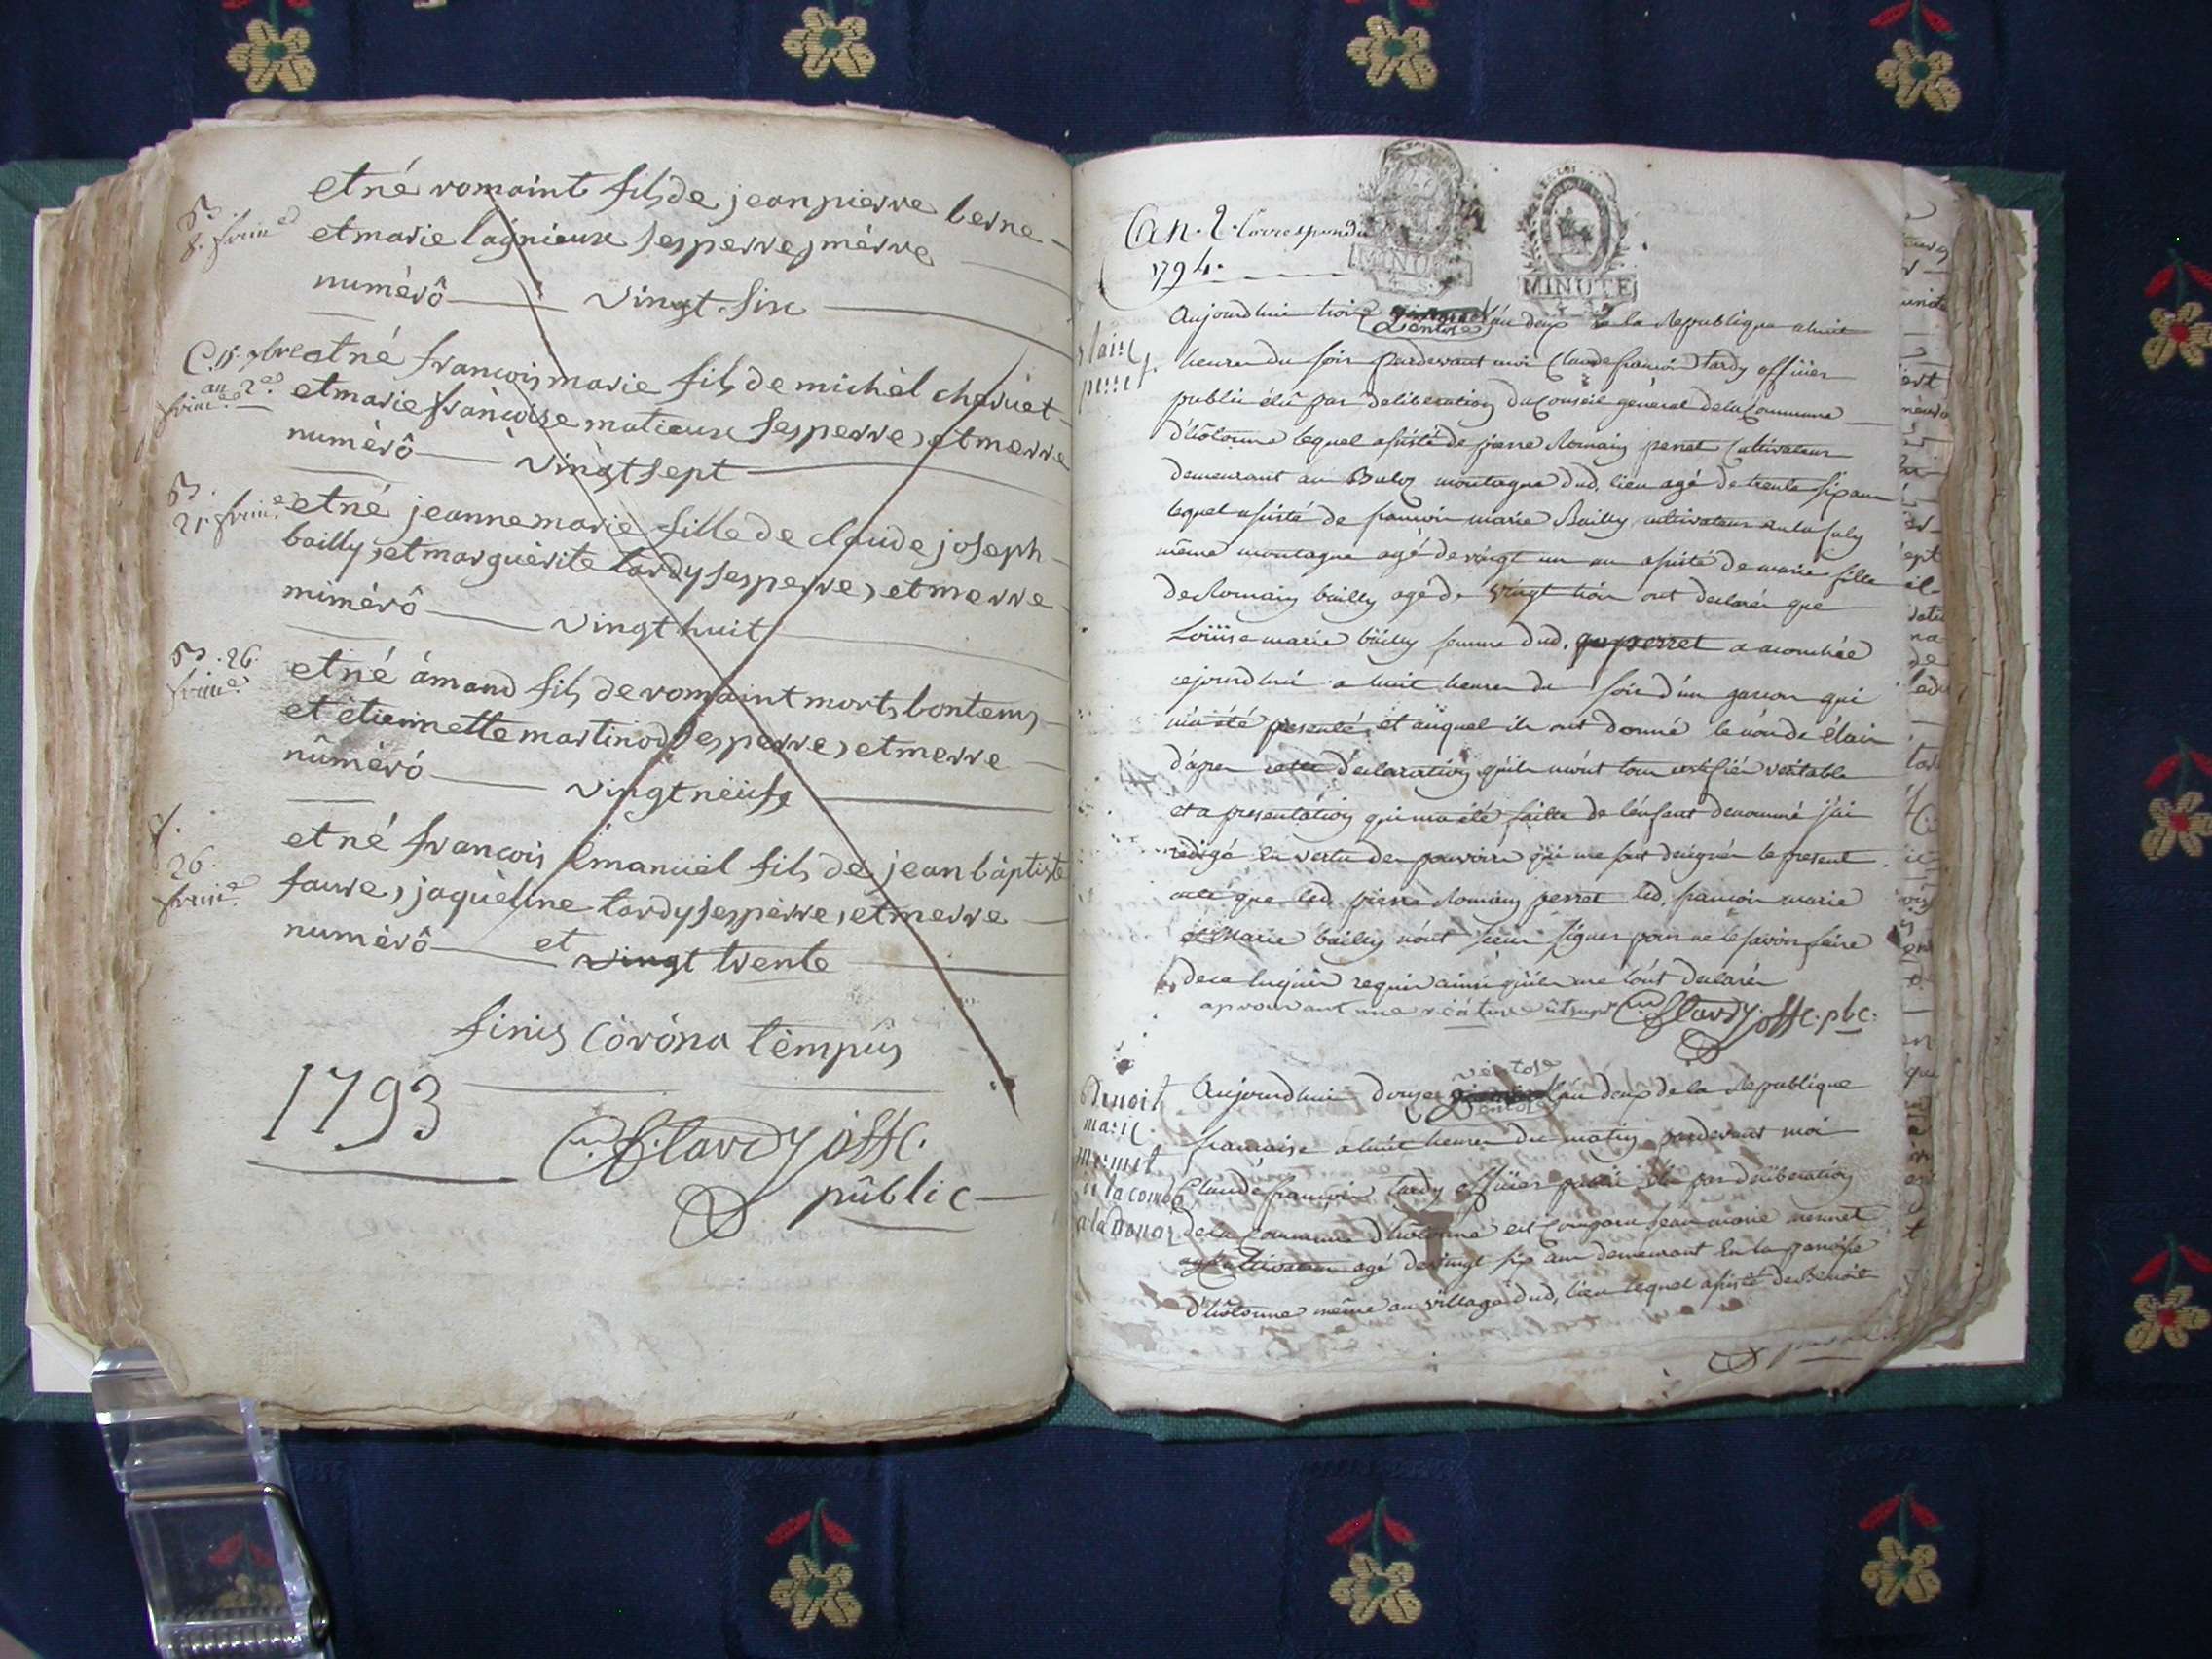 et né romaint fils de jean pierre berne
5. 8. frim.e
et marie lagnieux ses perre, mérre
numérô vingt-six
et né francois marie fils de michèl charvet
C. 15. 9bre an 2e frim.e
et marie françoise matieux ses perre, et merre
numérô vingt sept
21. frim.e
et né jeanne marie fille de claude joseph
bailly, et marguèrite tardy ses perre, et merre
numérô vingt huit
26. frim.e
et né ámand fils de romaint morts bontems
et etiennette martinod ses perre, et merre
nûméró vingt neüfs
26. frim.e
et né francois émanüel fils de jean báptiste
faure, jaquèline tardy ses pèrre, et merre
numérô et vingt trente
finis córóna tèmpus
1793
Cl. f. tardy offc.
pûblic
L'an. 2. Correspond
1794.
MINUTE
MINUTE
Aujourdhui trois ventose l'an deux de la Republique a huit
heures du soir pardevant moi Claude françois tardy officier
perret
public élû par deliberation du Conseil général de la Commune
d'hôtonne lequel assisté de pierre Romain perret Cultivateur
demeurant au montagne dud. lieu agé de trente six ans
lequel assisté de francois marie Bailly cultivateur
même montagne agé de vingt un an assisté de marie fille
de Romain bailly agé de vingt trois ont declarés que
Loüise marie bailly femme dud. perret a acouchée
cejourdhui a huit heures du soir d'un garcon qui
m'a été presenté, et auquel ils ont donné le nom de élain
d'apres cette declaration qu'ils m'ont tous certifiés veritable
et a presentation qui m'a été faitte de l'enfant denommé j'ai
redigé En vertu des pouvoirs qui me sont deleguées le present
acte que led. pierre Romain perret led. francois marie
et Marie bailly n'ont sceu signer pour ne le savoir faire
de ce enquis requis ainsi qu'ils me l'ont declarés
aprouvant une ratûre ût supr Cl. f. tardy offc. pbc.
ventose
Benoit marie mermet de la combe a la
Aujourdhui douze l'an deux de la Republique
francaise a huit heures du matin pardevant moi
Claude francois tardy officier public élu par deliberation
de la Commune d'hotonne est Comparu Jean marie mermet
Cultivateur agé de vingt six ans demeurant En la paroisse
d'hôtonne même au village dud. lieu lequel assisté de Benoit